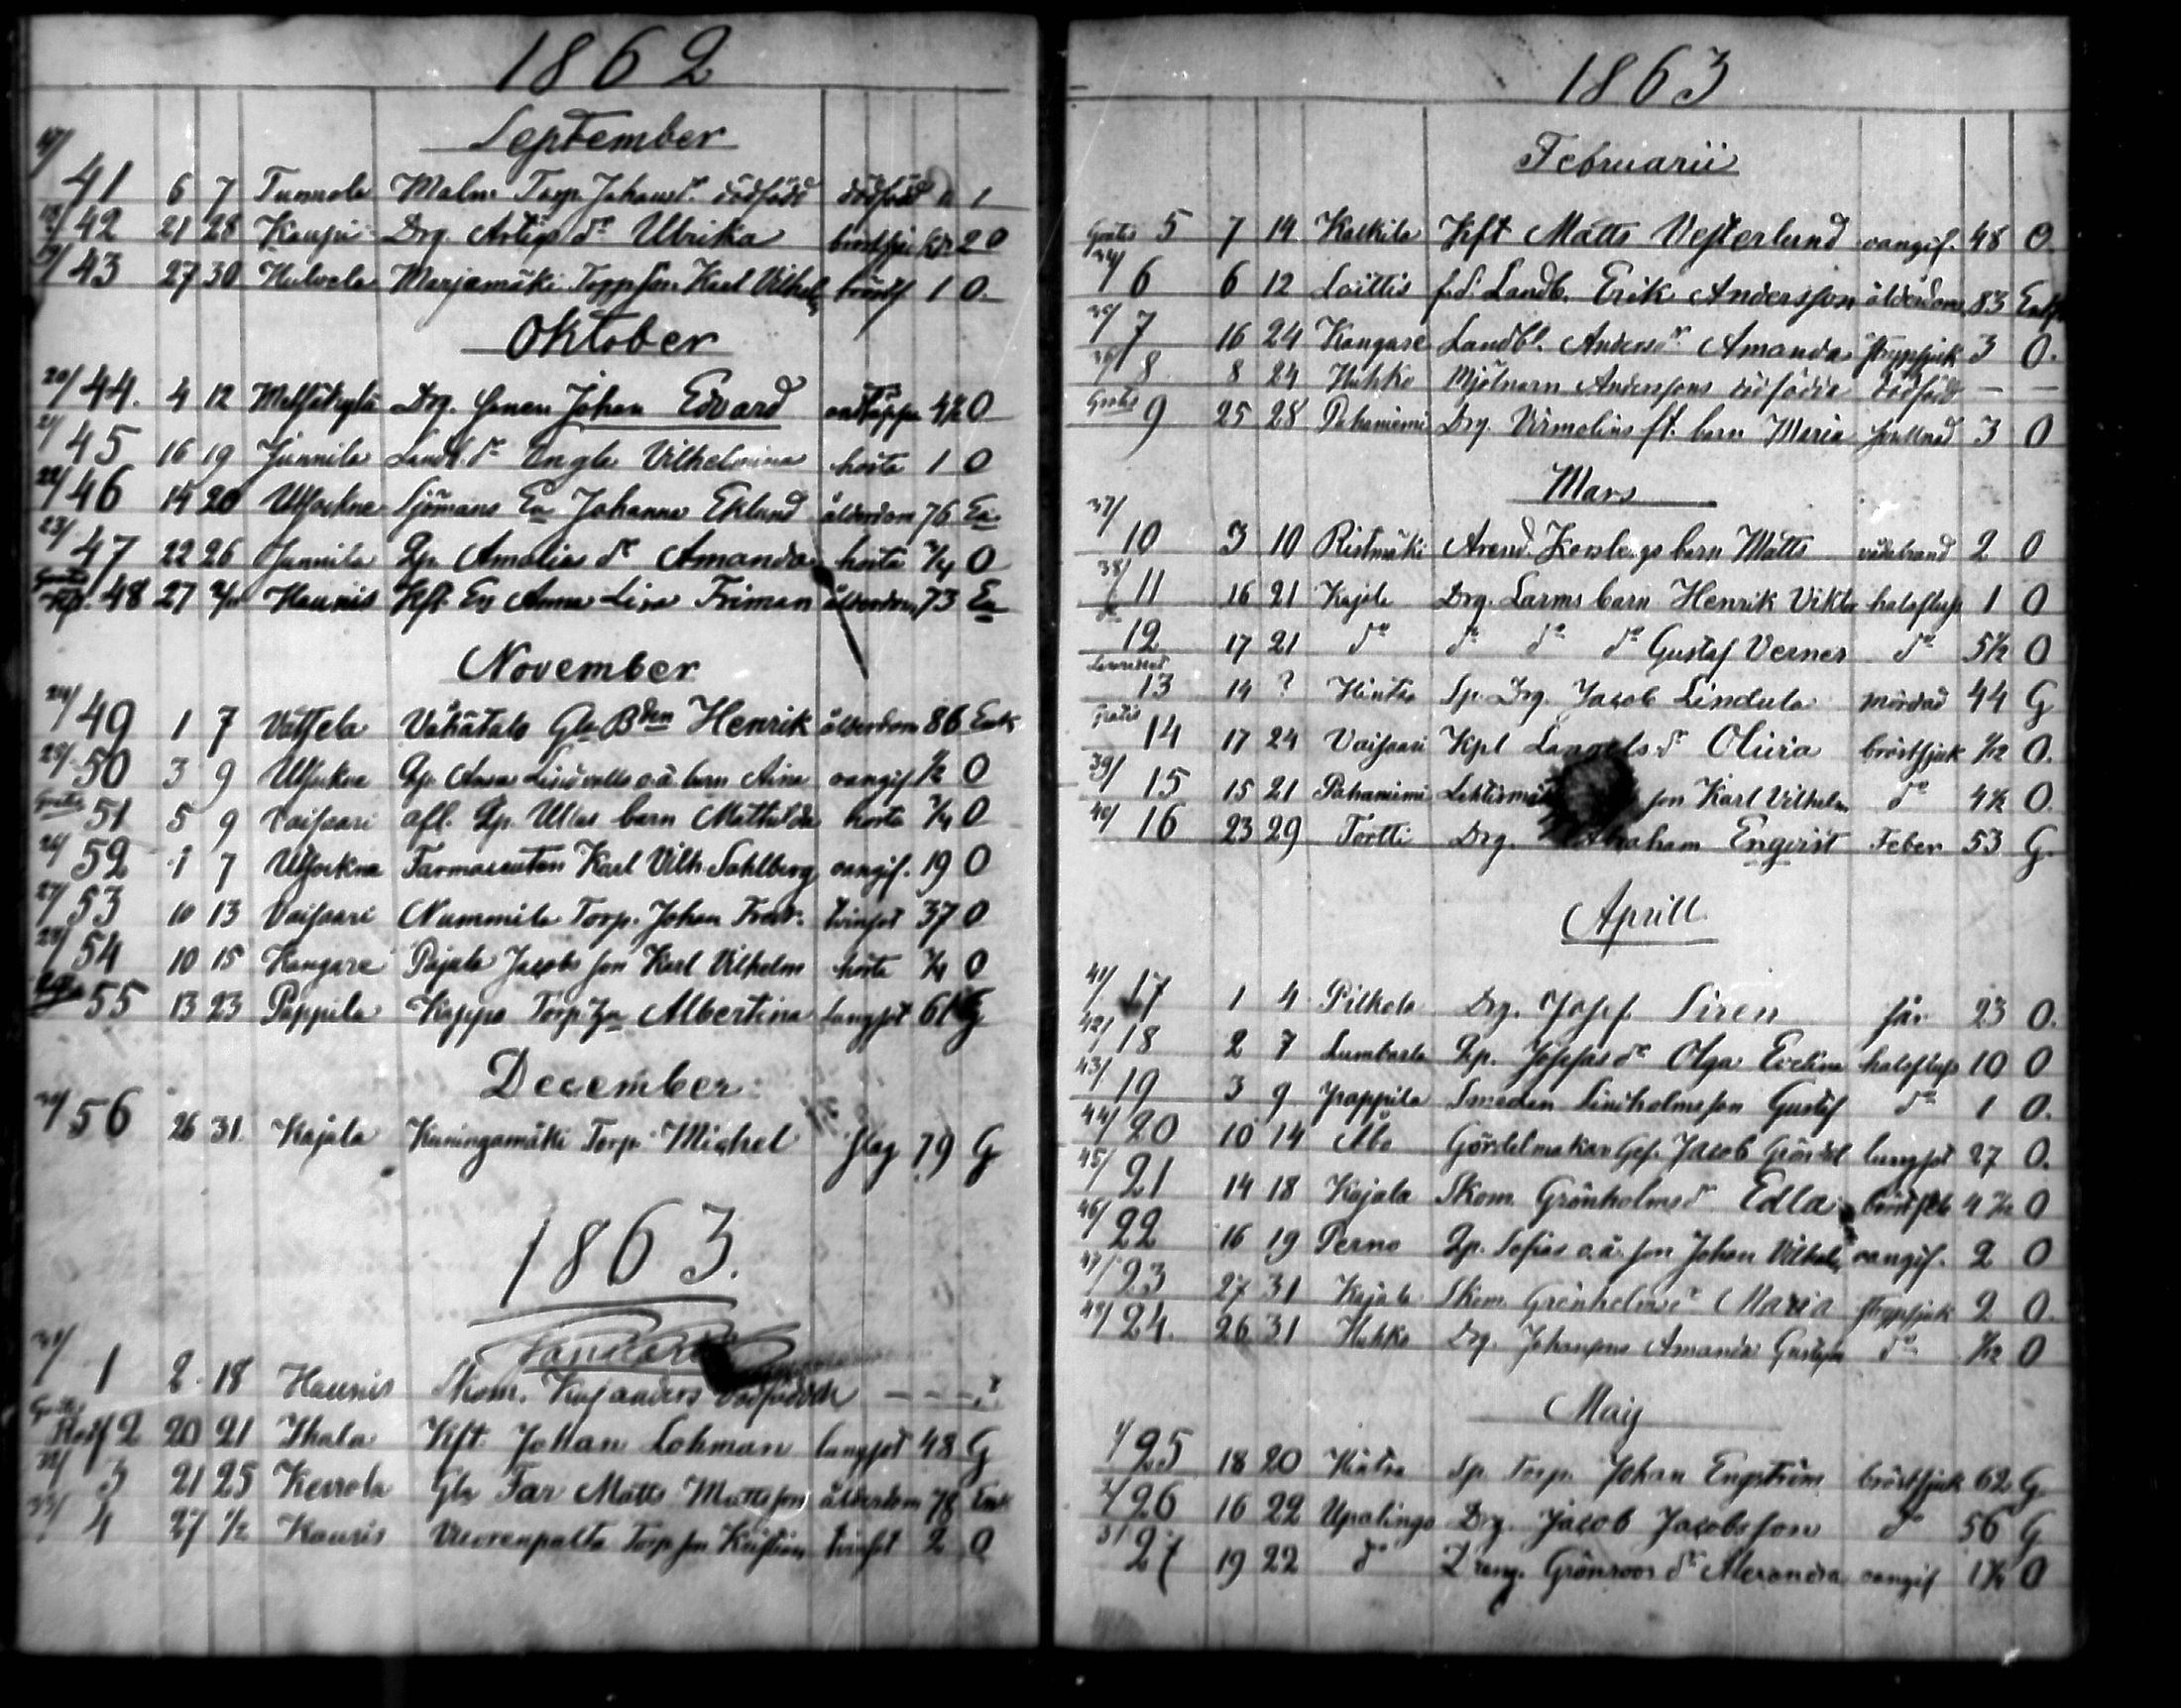 1862
September
41 6 7 Tunnola Malm Torp. Johans dr dödfödd dödfödd 1
42 21 28 Kaupi Drg. Artigs dr Ulrika bröstsju 20
43 27 30 Hulvela Marjamäki Torp son Karl Vilhelm bröstsj 1 0.
Oktober
20/ 44. 4 12 Drg. sonen Johan Edvard 4½ 0
21/ 45 16 19 Junnila Landb. dr Engla Vilhelmina hosta 1 0
22/ 46 14 20 Sjömans Ea Johanna Eklund ålderdom 76 Ea
23/ 47 22 26 Junnila Qp. Amalias dr Amanda hosta ¾ 0
Gratis 48 27 Haunis Kft. Ea Anna Lisa Friman ålderdom 73 Ea
November
24/ 49 1 7 Vättela Väkätalo Gla Bden Henrik ålderdom 86 Enk
25/ 50 3 9 Qp. Ansa Lindvalls o.ä. barn Aina oangif. ½ 0
Gratis 51 5 9 Vaisaari afl. Qp. Ullas barn Mathilda hosta ¾ 0
26/ 52 1 7 Farmaceuten Karl Vilh. Sahlberg oangif. 19 0
27/ 53 10 13 Vaisaari Nummila Torp. Johan Fredr. tvinsot 37 0
28/ 54 10 15 Kangare Pajala Jacobs son Karl Vilhelm hosta ¾ 0
55 13 23 Pappila Kappa Torp. Albertina lungsot 61 G
December
30/ 56 26 31. Kajala Kuningamäki Torp. Michel slag 79 G
1863.
Januari
31/ 1 2 18 Haunis Skom. Kajanders dödfödda – – –
Gratis 2 20 21 Ihala Kft. Johan Lohman lungsot 48 G
32/ 3 21 25 Keirola Gla Far Matts Mattsson ålderdom 78 Enk
33/ 4 27 ½ Kauris Vuorenpalta Torp son Kristian tvinsot 2 0
1863
Februarii
Gratis 5 7 14 Kaskila Kft Matts Vesterlund oangif. 48 0.
34/ 6 6 12 Loittis f.d. Landb. Erik Andersson ålderdom 83 Enk
35/ 7 16 24 Kangare Landb. Anders dr Amanda strypsjuk 3 0.
36/ 8 8 24 Huhko Mjölnarn Anderssons dödfödda dödfödd – –
Gratis 9 25 28 Pahaniemi Drg. Virmelins ft. barn Maria svullnad 3 0
Mars
37/ 10 3 10 Ristimäki Arend. barn Matts vådabrand 2 0
38/ 11 16 21 Kajala Drg. Larms barn Henrik Viktor halsfluss 1 0
12 17 21 do do do do Gustaf Verner do 5½ 0
13 14 ? Hintsa Sp. Drg. Jacob Lindula mördad 44 G
Gratis 14 17 24 Vaisaari Kpl dr Olivia bröstsjuk 1/12 0.
39/ 15 15 21 Pahaniemi son Karl Vilhelm do 4½ 0.
40/ 16 23 29 Tortti Drg. Abraham Enqvist Feber 53 G.
Aprill.
41/ 17 1 4 Pitkola Drg. Josef Siren sår 23 0.
42/ 18 2 7 Lumbarla Qp. Josefas dr Olga Evelina halsfluss 10 0
43/ 19 3 9 Pappila Smeden Lindholms son Gustaf do 1 0.
44/ 20 10 14 Åbo Gördelmakar Ges. Jacob lungsot 27 0.
45/ 21 14 18 Kajala Skom. Grönholms dr Edla 4 0
46/ 22 16 19 Perno Qp. Sofias o.ä. son Johan Vilhelm oangif. 2 0
47/ 23 27 31 Kajala Skom. Grönholms dr Maria strypsjuk 2 0.
48/ 24. 26 31 Huhko Drg. Johanssons Amanda Gustafva do 1/12 0
Maij
1/ 25 18 20 Hintsa Sp. Torp. Johan Engström bröstsjuk 62 G.
2/ 26 16 22 Upalingo Drg. Jacob Jacobsson do 56 G
3/ 27 19 22 do Dräng. Grönroos dr Alexandra oangif 1¼ 0